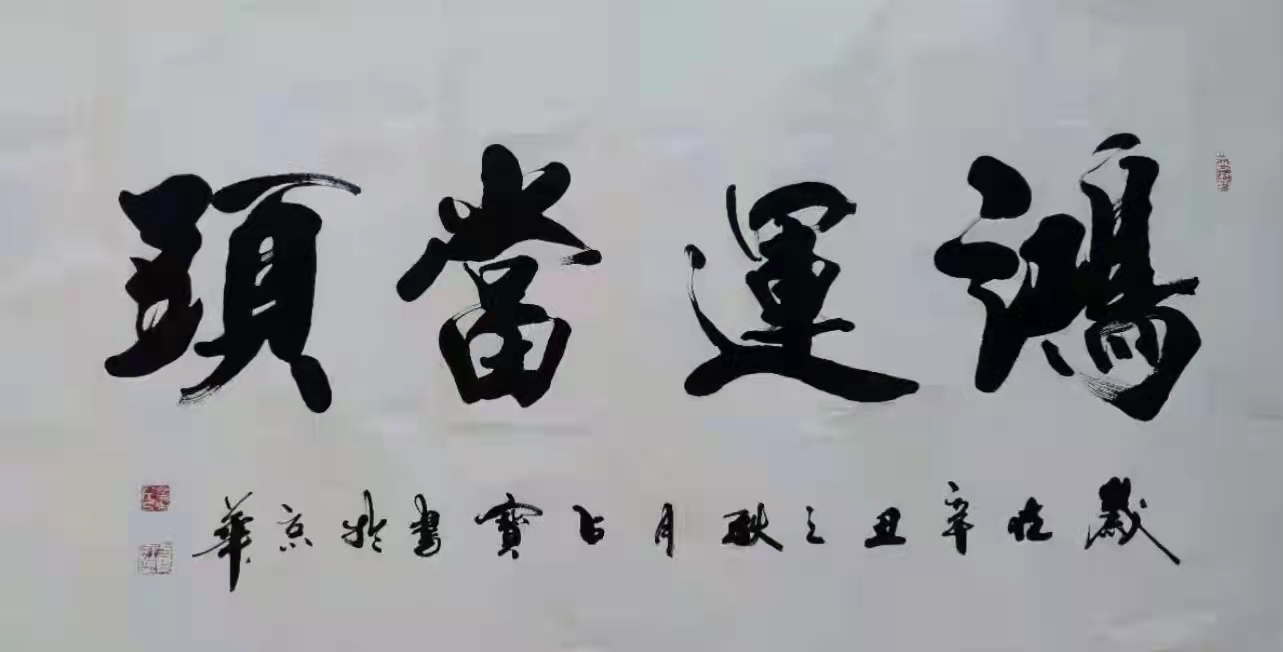 鴻運當頭
歲在辛丑之秋月占寳書於京華